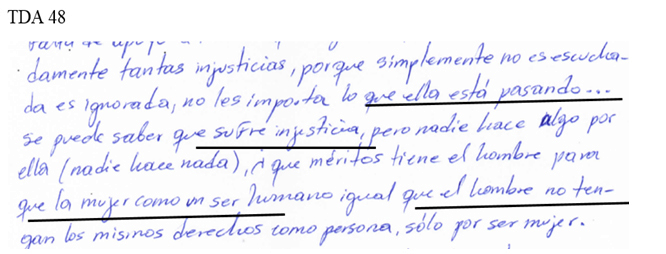 TDA 48
falta de apoyo a
damente tantas injusticias, porque simplemente no es escucha-
da es ignorada, no les importa lo que ella está pasando...
se puede saber que sufre injusticia, pero nadie hace algo por
ella (nadie hace nada), ¿ que méritos tiene el hombre para
que la mujer como un ser humano igual que el hombre no ten-
gan los mismos derechos como persona, sólo por ser mujer.